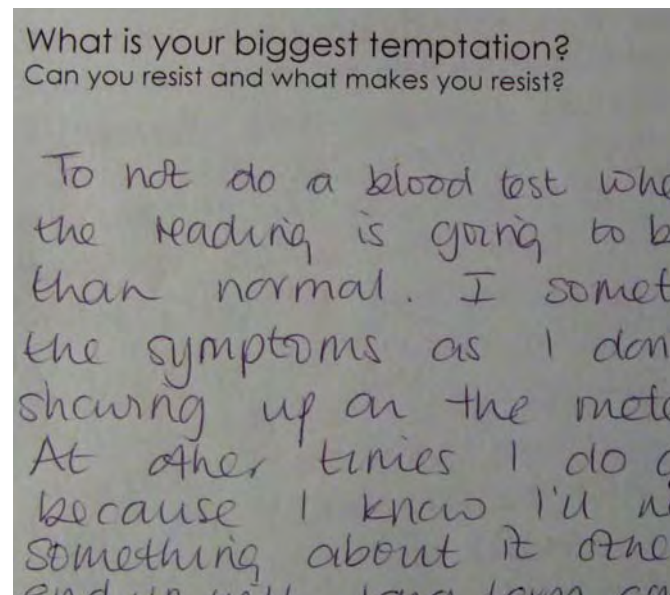 What is your biggest temptation?
Can you resist and what makes you resist?
To not do a blood test whe
the reading is going to b
than normal. I somet
the symptoms as I don
showing up on the mete
At other times I do a
because I know I'll n
something about it othe
end up with long term